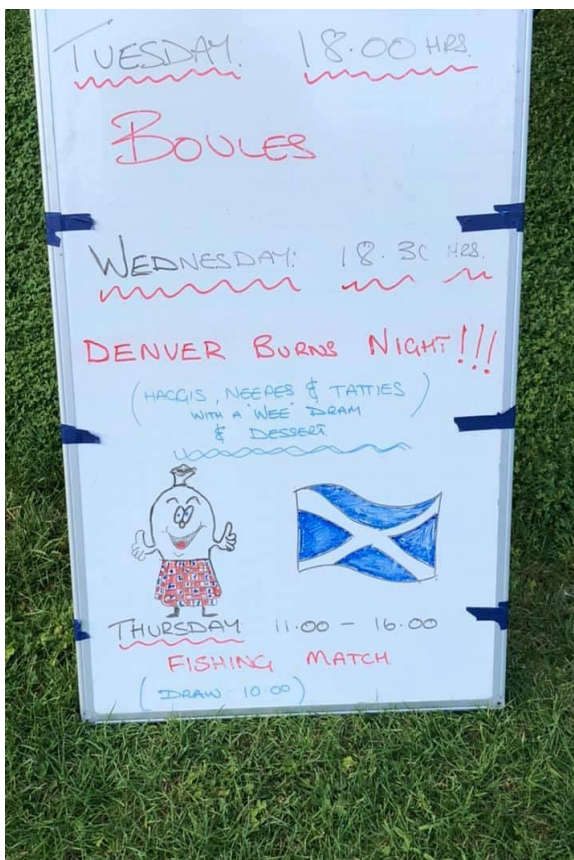 TUESDAY. 18.00 HRS.
BOULES
WEDNESDAY: 18.30 HRS.
DENVER BURNS NIGHT!!!
(HAGGIS, NEEPES & TATTIES)
WITH A "WEE" DRAM
& DESSERT
THURSDAY 11.00 - 16.00
FISHING MATCH.
(DRAW 10.00)